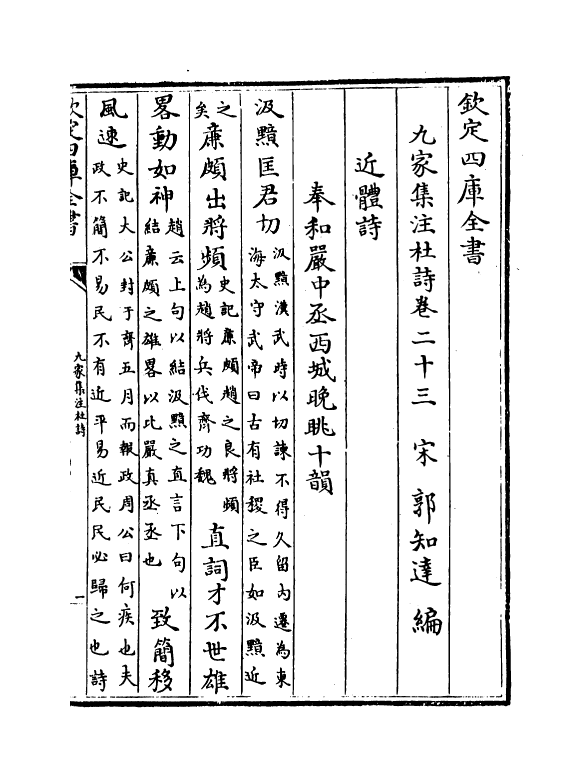 欽定四庫全書
九家集注杜詩卷二十三　宋　郭知達　編
近體詩
奉和嚴中丞西城晚眺十韻
汲黯匡君切汲黯漢武時以切諫不得久留內遷為東
海太守武帝曰古有社稷之臣如汲黯近
之
矣廉頗出將頻史記廉頗趙之良將頻
為趙將兵伐齊功魏直詞才不世雄
畧動如神趙云上句以結汲黯之直言下句以
結廉頗之雄畧以比嚴真丞丞也致簡移
風速史記大公封于齊五月而報政周公曰何疾也夫
政不簡不易民不有近平易近民民必歸之也詩
欽定四庫全書
九家集注杜詩
一